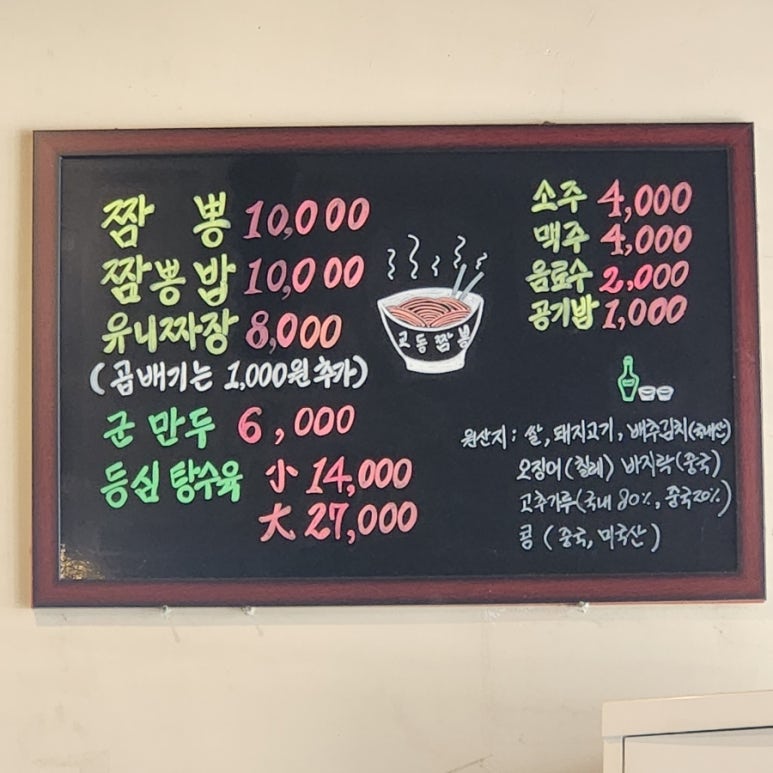 짬 뽕 10,000
짬뽕밥 10,000
유니짜장 8,000
(곱배기는 1,000원 추가)
군만두 6,000
등심탕수육 小 14,000
大 27,000
교동짬뽕
소주 4,000
맥주 4,000
음료수 2,000
공기밥 1,000
원산지: 쌀, 돼지고기, 배추김치(국내산)
오징어(칠레) 바지락(중국)
고추가루(국내 80%, 중국20%)
콩 (중국, 미국산)